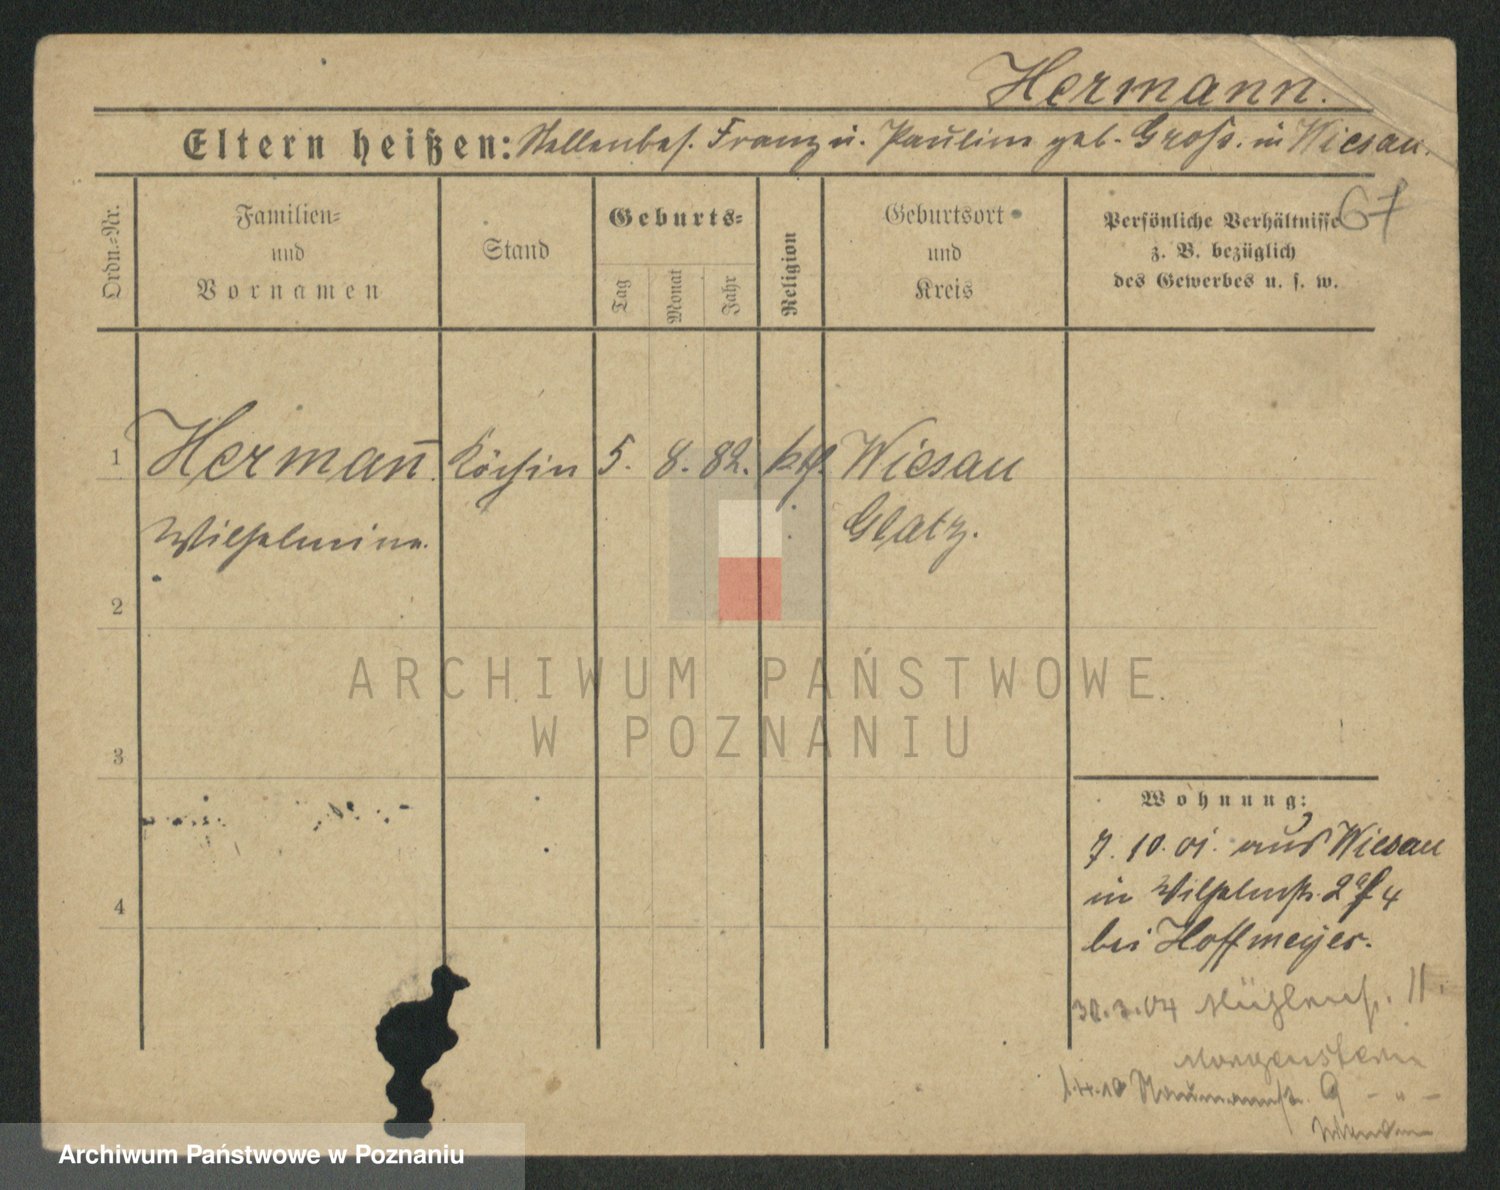 Hermann.
Eltern heißen: Stellenbes. Franz u. Pauline geb. Groß. in Wiesau.
67
Ordn.=Nr.
Familien=
und
Vornamen
Stand
Geburts=
Tag
Monat
Jahr
Religion
Geburtsort
und
Kreis
Persönliche Verhältnisse
z. B. bezüglich
des Gewerbes u. s. w.
1 Hermann̄ Köchin 5. 8. 82. kth. Wiesau
Wilhelmine. Glatz.
2
3
4
ARCHIWUM PAŃSTWOWE
W POZNANIU
Wohnung:
7. 10. 01. aus Wiesau
in Wilhelmstr. 2
bei Hoffmeyer.
30.3.04 Mühlenstr. 11.
Morgenstern
1.4.10 Naumannstr. 9 - " -
Archiwum Państwowe w Poznaniu